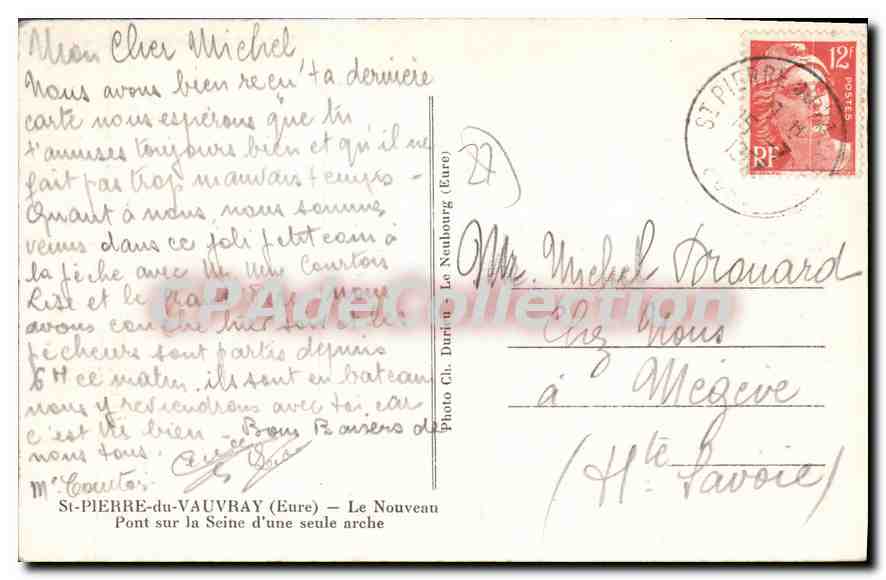 Mon Cher Michel
Nous avons bien reçu ta dernière
carte nous espérons que tu
t'amuses toujours bien et qu'il ne
fait pas trop mauvais temps.
Quant à nous, nous sommes
venus dans ce joli petit coin à
la pêche avec M. Mme Courtois
Lise et le nous
avons couché hier soir et les
pêcheurs sont partis depuis
6H ce matin. ils sont en bateau
nous y reviendrons avec toi car
c'est très bien. Bons Baisers de
nous tous.
Mr Courtois
St-PIERRE-du-VAUVRAY (Eure) — Le Nouveau
Pont sur la Seine d'une seule arche
Photo Ch. Duriou - Le Neubourg (Eure)
27
12F
POSTES
RF
ST PIERRE DU
15
Mr. Michel Drouard
Chez Nous
à Mégève
(Hte Savoie)
CPAdeCollection